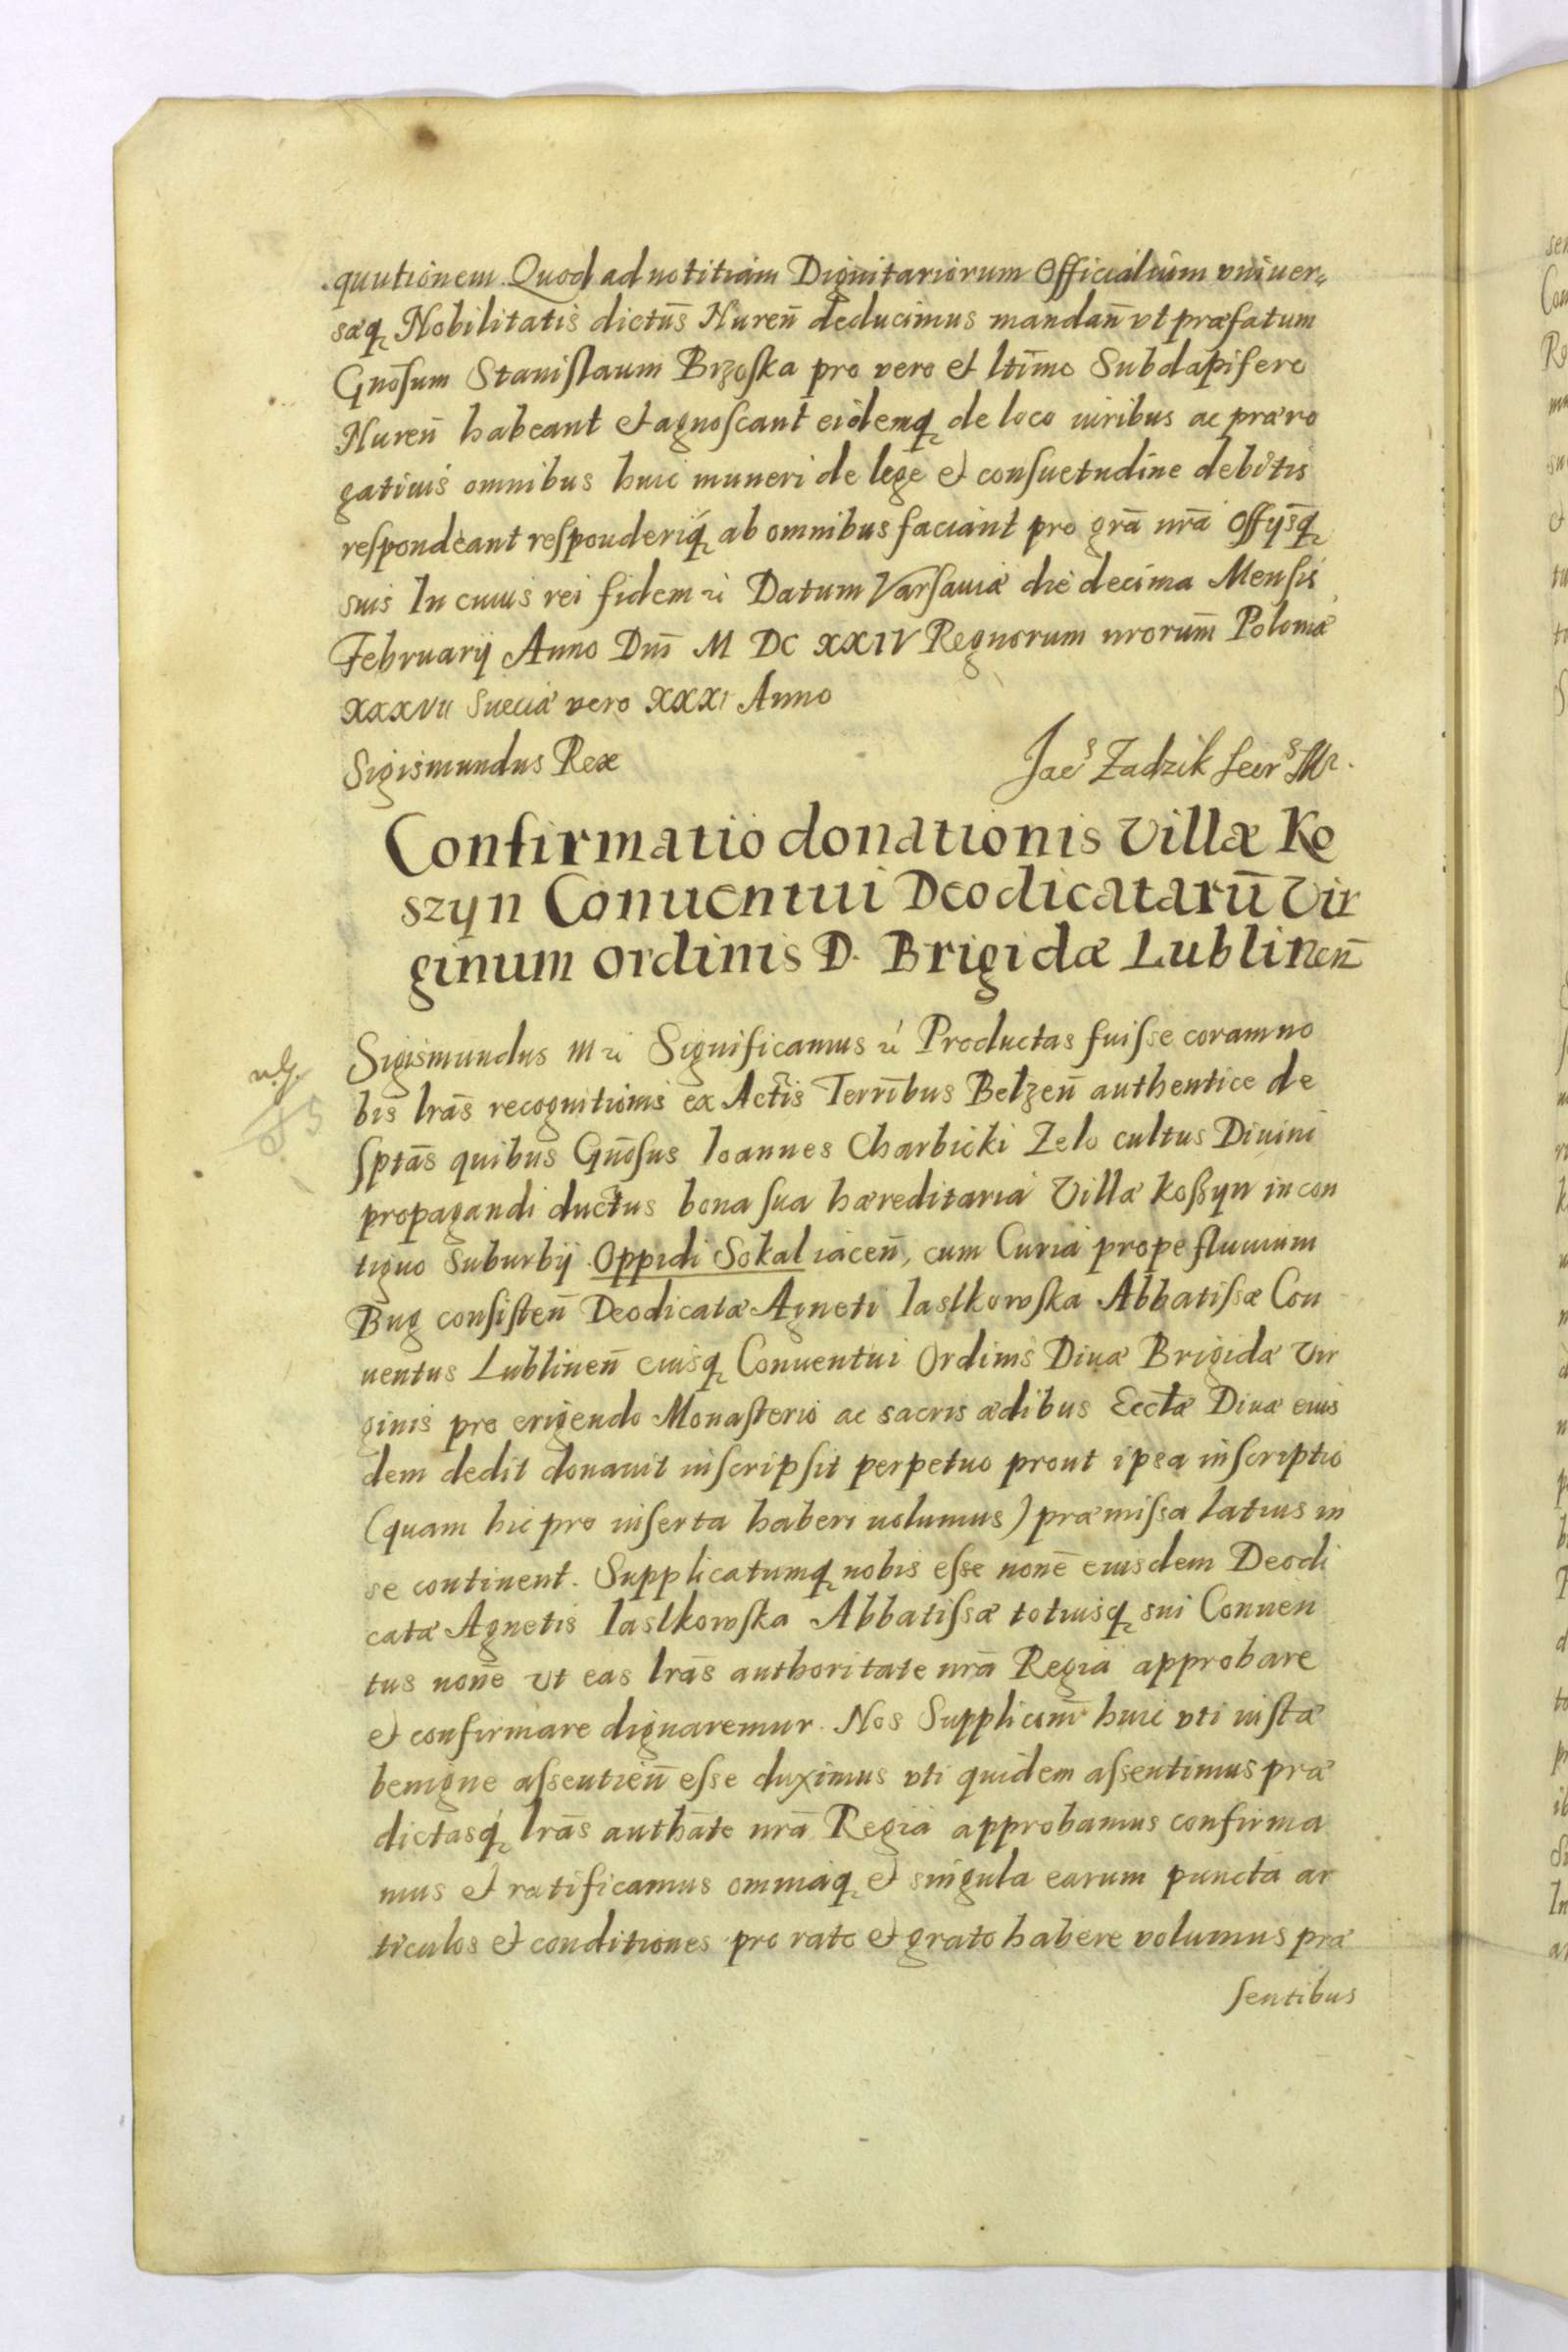 qnutionem Quod ad notitiam Dignitariorum Officialium vniuer„
sæq̨ Nobilitatis dictus̄ Nuren̄ deducimus mandan̄ vt præfatum
Gno̅sum Staniſlaum Brzoſka pro vero et ltīmo Subdapifero
Nuren̄ habeant et agnoſcant eidemq̨ de loco iuribus ac præro
gatiuis omnibus huic muneri de lege et conſuetudine debitis
reſpondeant reſponderiq̨ ab omnibus faciant pro grā nrā Offijs̄q̨
suis In cuius rei fidem etc Datum Varſauiæ die decima Menſis
February Anno Dnī M DC XXIV Regnorum nrorum̄ Poloniæ
XXXVII Sueciæ vero XXXI Anno
Sigismundus Rex
Jac⁠s Zadzik Secr⁠s Mr.
Confirmatio donationis Villæ Ko
szyn Conuentui Deodicatarū Vir
ginum Ordinis D. Brigidæ Lublinen̄
Sigismundus III etc Significamus etc Productas fuiſse coram no
bis lrās recognitionis ex Actis Terrībus Belzen̄ authentice de
ſptās quibus Gnōſus Ioannes Charbicki Zelo cultus Diuini
propagandi ductus bona ſua hæreditaria Villæ Koßyn in con
tiguo Suburbij Oppidi Sokal iacen̄, cum Curia prope fluuium
Bug conſiſten̄ Deodicatæ Agneti Iaslkowſka Abbatiſsæ Con
uentus Lublinen̄ eiusq̨ Conuentui Ordinis Diuæ Brigidæ Vir
ginis pro erigendo Monaſterio ac sacris ædibus Eccłæ Diuæ eius
dem dedit donauit inſcripſit perpetuo prout ipsa inſcriptio
(quam hic pro inſerta haberi uolumus) præmiſsa latius in
se continent. Supplicatumq̨ nobis eſse nonē eiusdem Deodi
catæ Agnetis Iaslkowſka Abbatiſsæ totiusq̨ sui Conuen
tus nonē vt eas lrās authoritate nrā Regia approbare
et confirmare dignaremur. Nos Suppliconi̅ huic vti iuſtæ
benigne aſsentien̄ eſse duximus vti quidem aſsentimus præ
dictasq̨ lrās authāte nrā Regia approbamus confirma
mus et ratificamus omniaq̨ et singula earum puncta ar
ticulos et conditiones pro rato et grato habere volumus præ
ſentibus